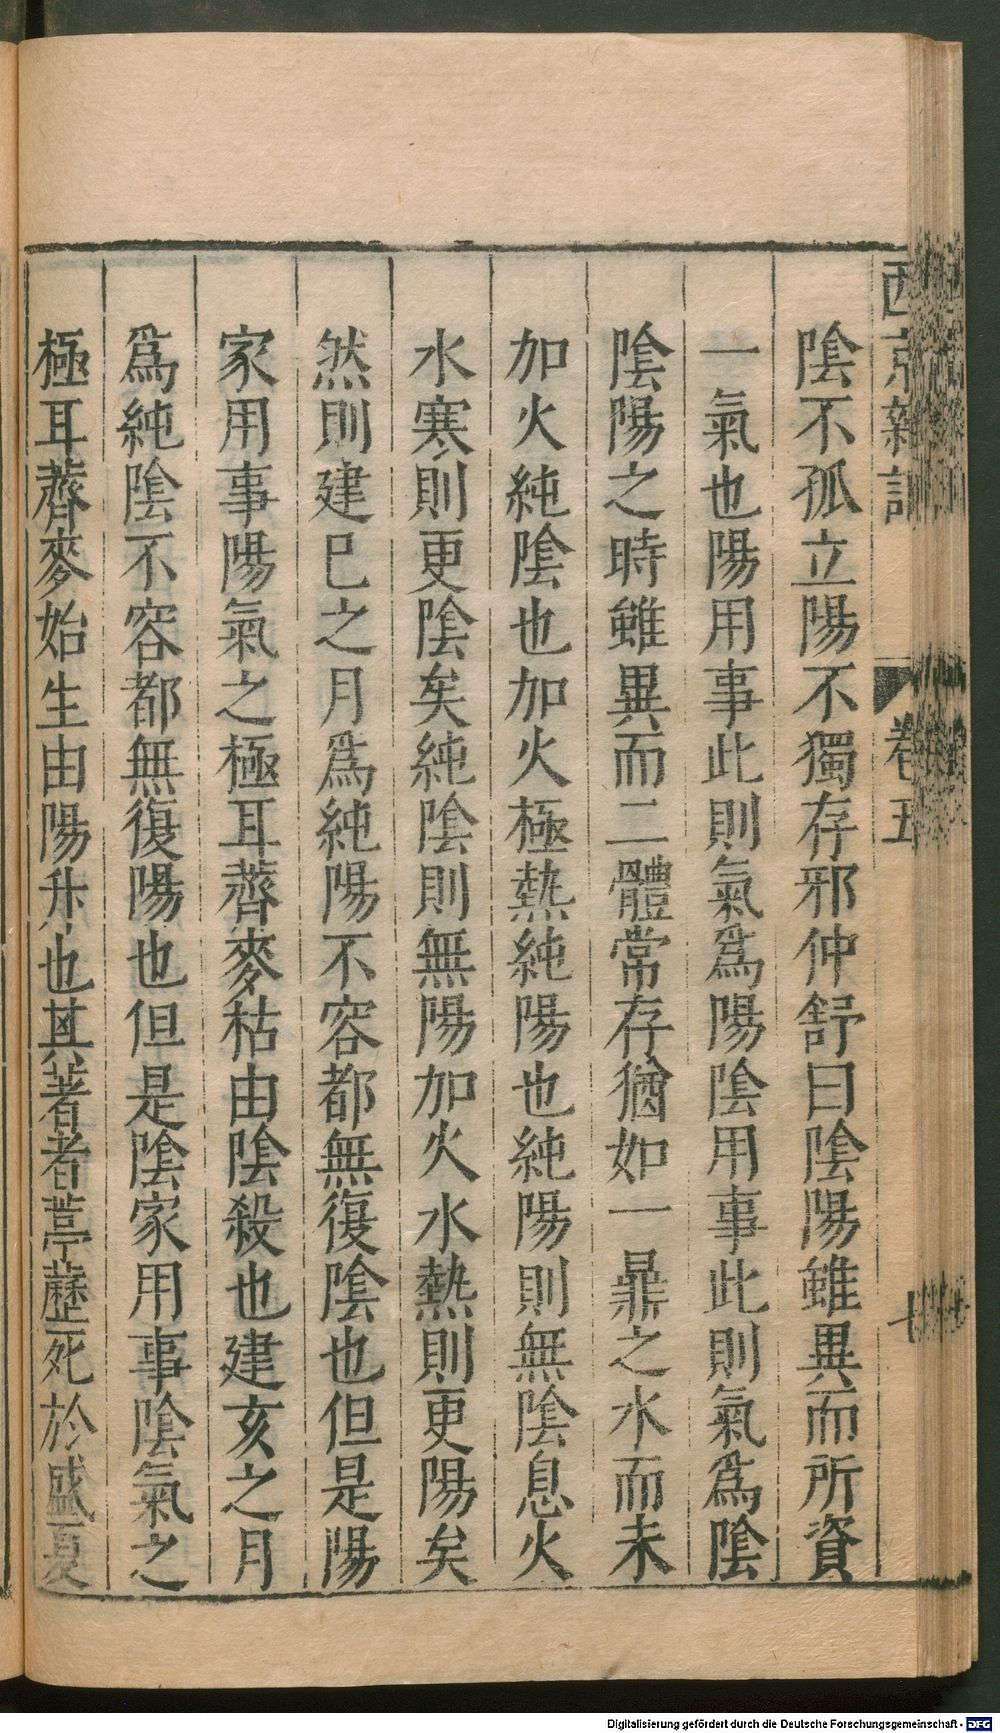 西京雜記
卷五
七
陰不孤立陽不獨存邪仲舒曰陰陽雖異而所資
一氣也陽用事此則氣爲陽陰用事此則氣爲陰
陰陽之時雖異而二體常存猶如一鼎之水而未
加火純陰也加火極熱純陽也純陽則無陰息火
水寒則更陰矣純陰則無陽加火水熱則更陽矣
然則建巳之月爲純陽不容都無復陰也但是陽
家用事陽氣之極耳薺麥枯由陰殺也建亥之月
爲純陰不容都無復陽也但是陰家用事陰氣之
極耳薺麥始生由陽升也其著者葶藶死於盛夏
Digitalisierung gefördert durch die Deutsche Forschungsgemeinschaft - DFG